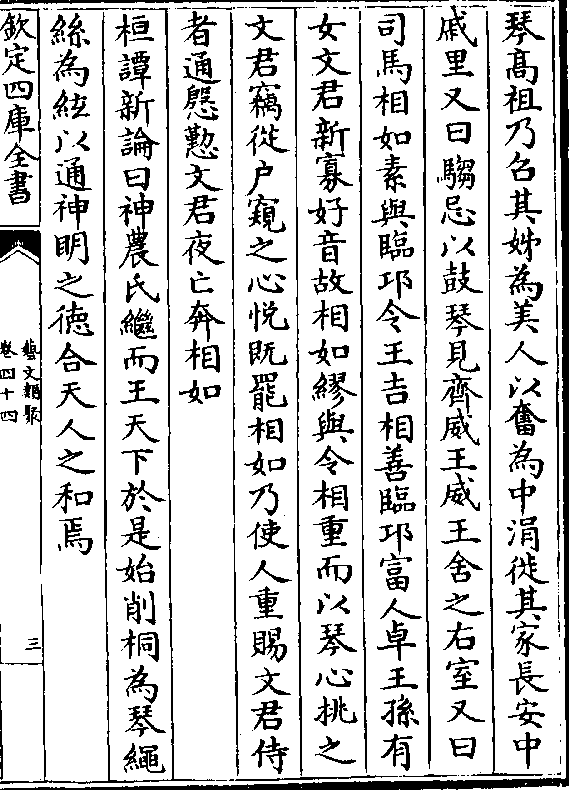 琴髙祖乃召其姊為美人以奮為中涓徙其家長安中
戚里又曰騶忌以鼓琴見齊威王威王舍之右室又曰
司馬相如素與臨邛令王吉相善臨邛富人卓王孫有
女文君新寡好音故相如繆與令相重而以琴心挑之
文君竊從户窺之心悦既罷相如乃使人重賜文君侍
者通慇懃文君夜亡奔相如
桓譚新論曰神農氏繼而王天下於是始削桐為琴繩
絲為絃以通神眀之徳合天人之和焉
欽定四庫全書
藝文類聚
卷四十四
三